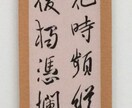 花時頻縱
後獨憑欄